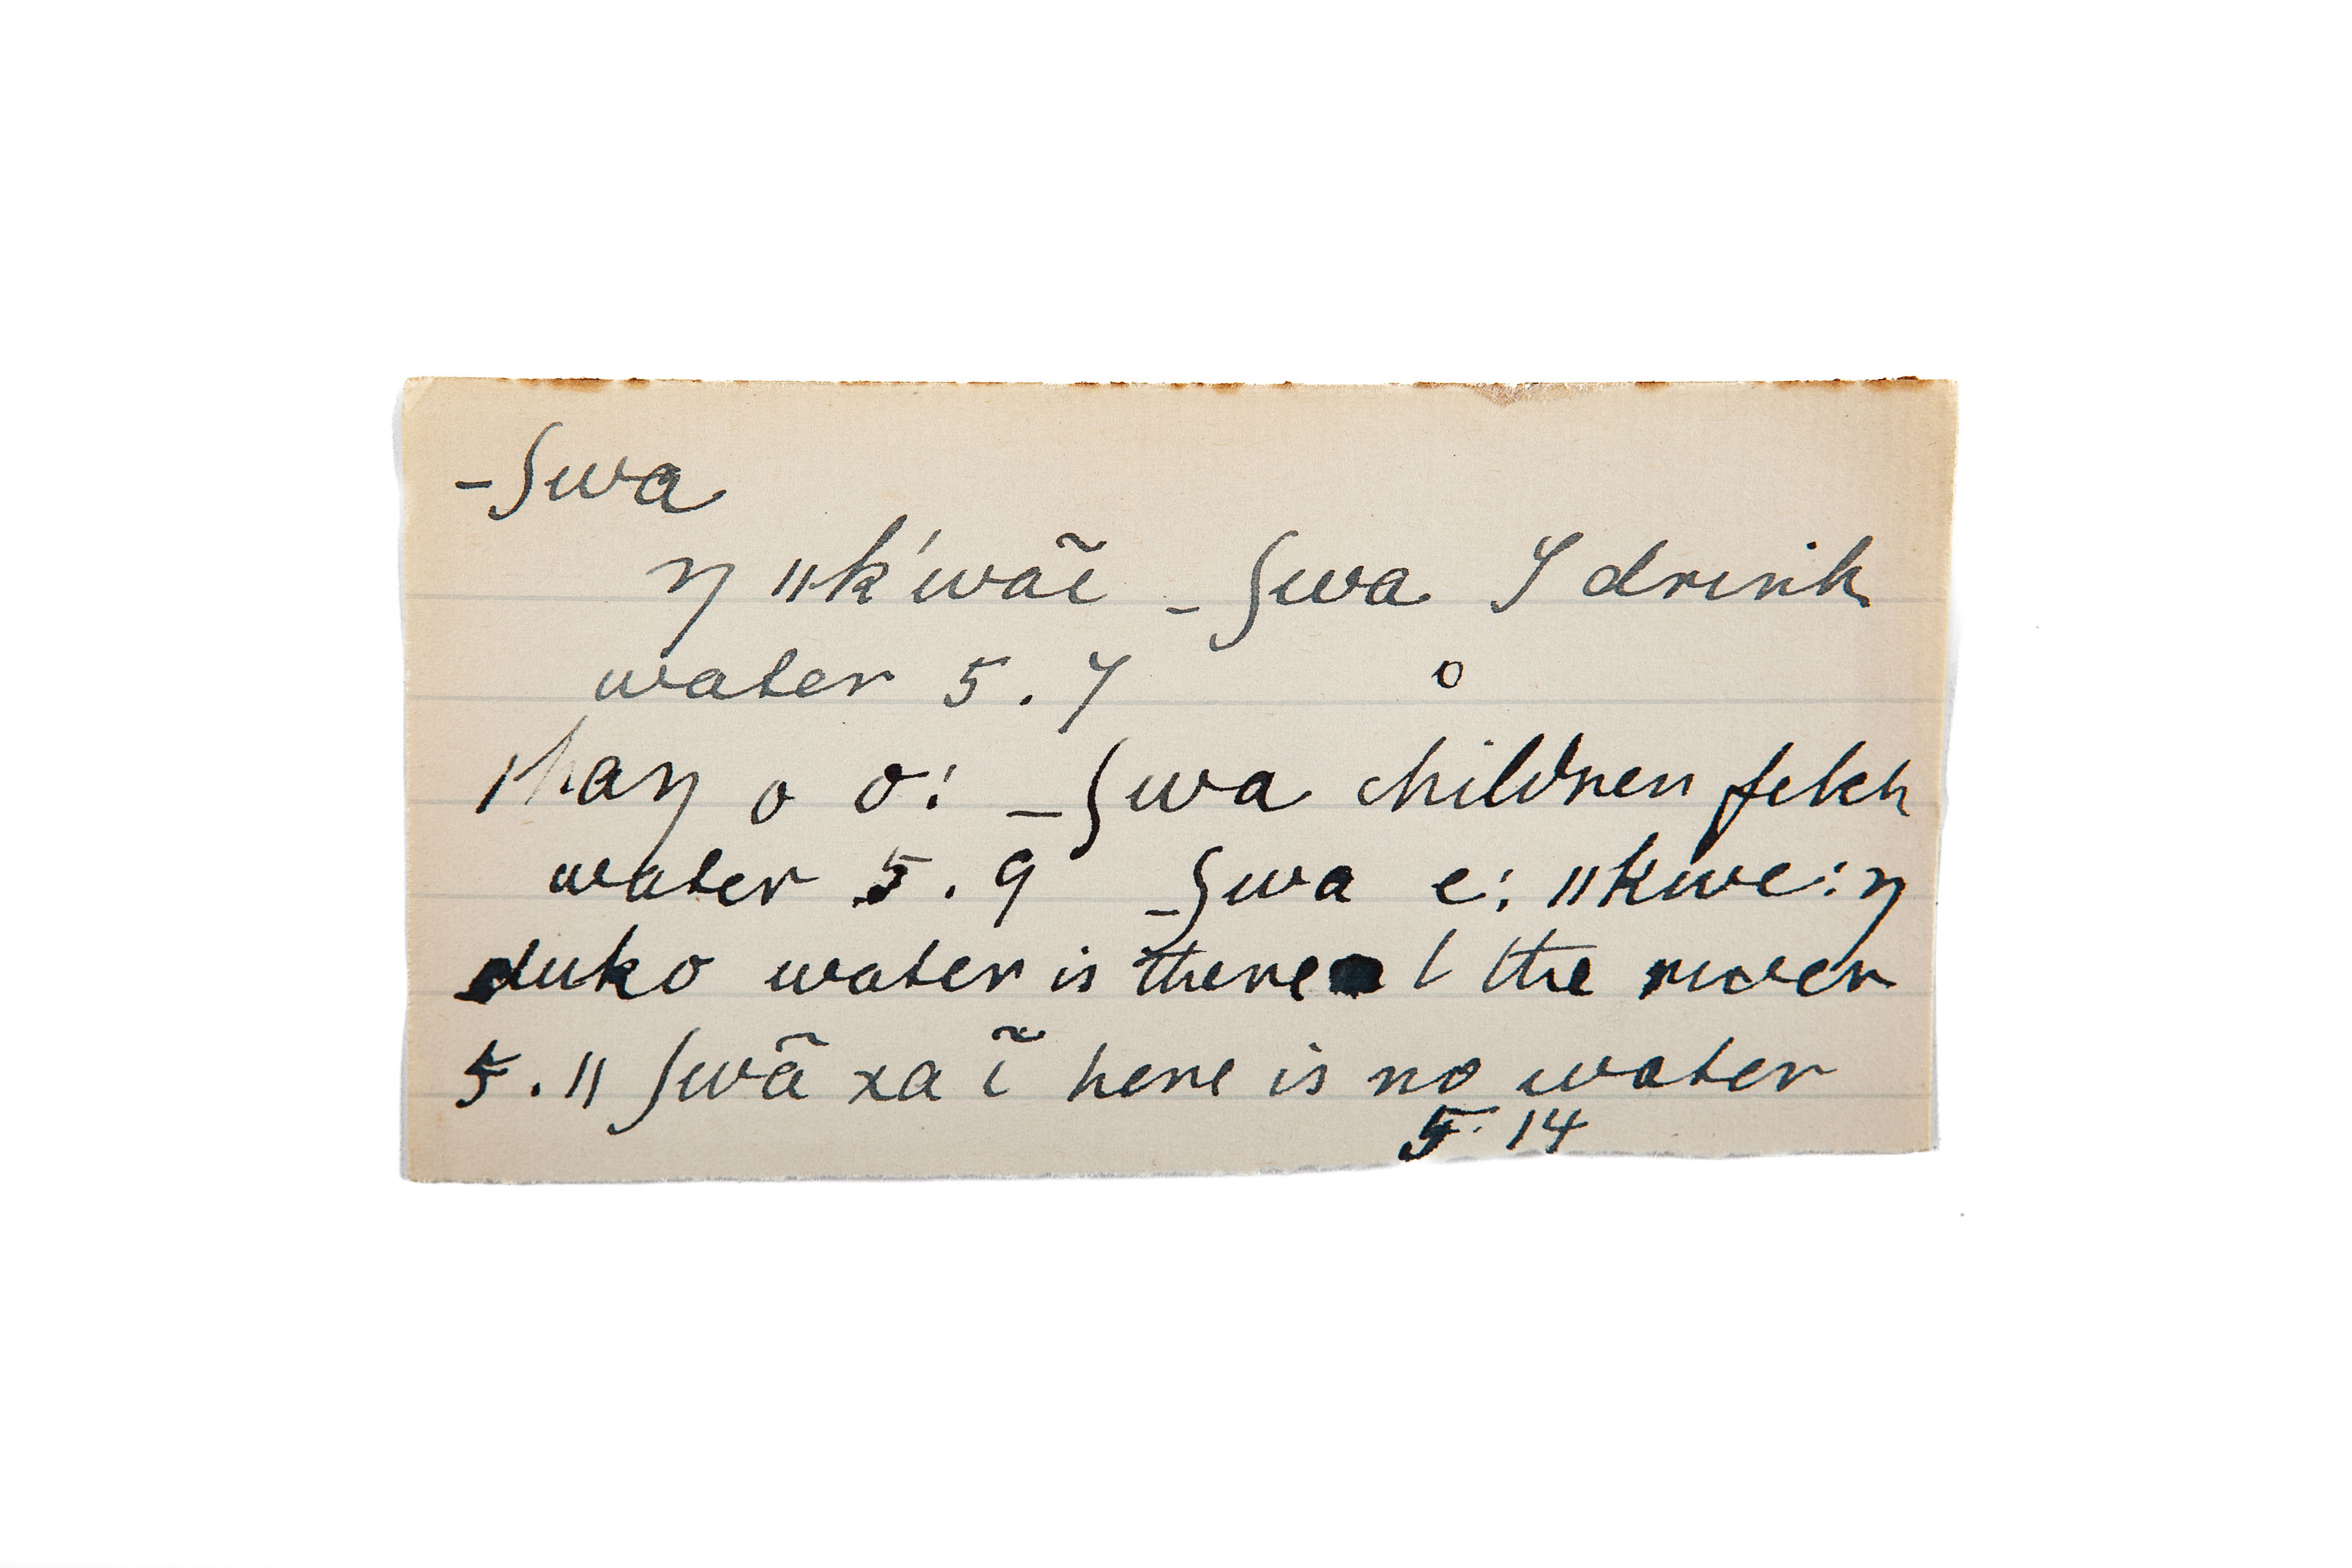 -ʃwa
ŋ ǁk'wãĩ -ʃwa I drink
water 5.7
ǀhaŋ o o: -ʃwa children fetch
water 5.9 -ʃwa e: ǁkwe:ŋ
duko water is there t the river
5.11 ʃwã xa ĩ here is no water
5.14